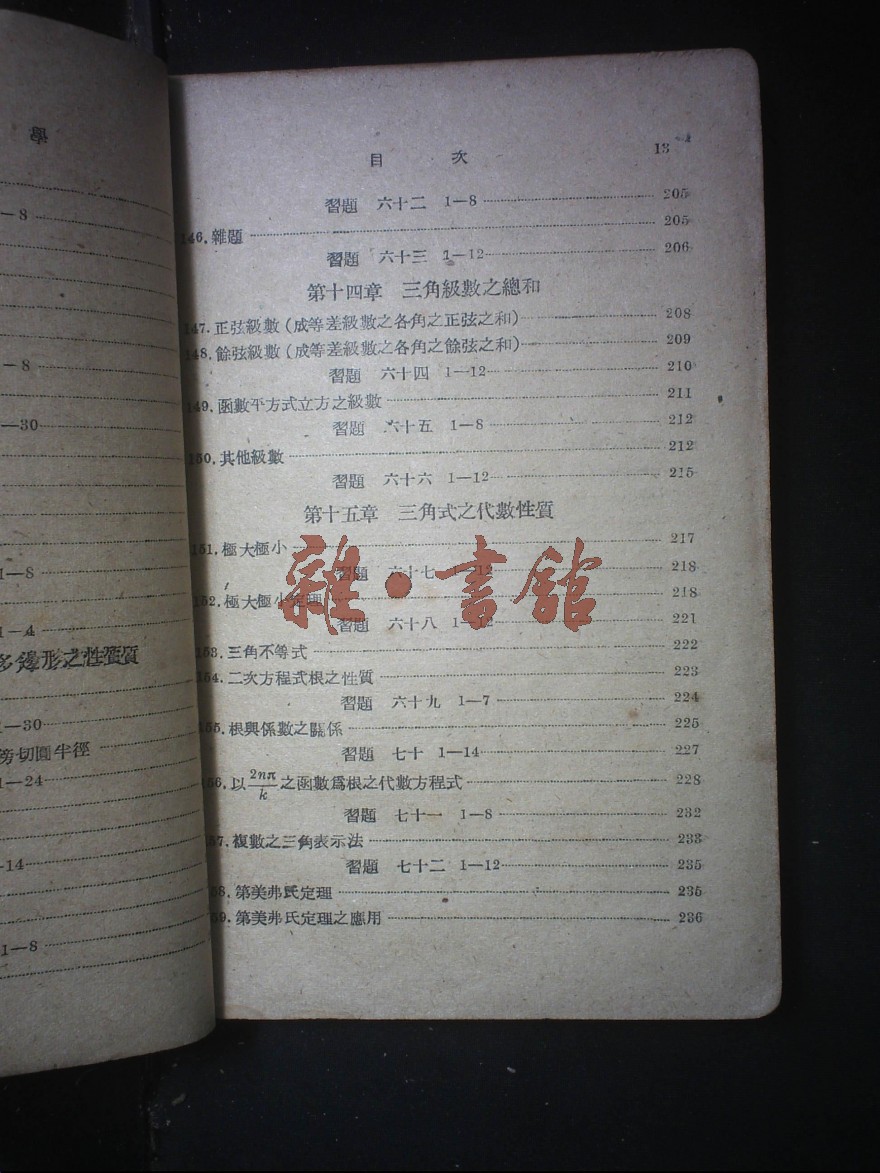 學
—8
—8
—30
1—8
1—4
多邊形之性質
1—30
傍切圓半徑
1—24
—14
1—8
目 次 13
習題 六十二 1—8 205
146.雜題 205
習題 六十三 1—12 206
第十四章 三角級數之總和
147.正弦級數(成等差級數之各角之正弦之和) 208
148.餘弦級數(成等差級數之各角之餘弦之和) 209
習題 六十四 1—12 210
149.函數平方式立方之級數 211
習題 六十五 1—8 212
150.其他級數 212
習題 六十六 1—12 215
第十五章 三角式之代數性質
151.極大極小 217
習題 六十七 1—12 218
152.極大極小定理 218
習題 六十八 1—12 221
153.三角不等式 222
154.二次方程式根之性質 223
習題 六十九 1—7 224
155.根與係數之關係 225
習題 七十 1—14 227
156.以2nπ/k之函數爲根之代數方程式 228
習題 七十一 1—8 232
157.複數之三角表示法 233
習題 七十二 1—12 235
158.第美弗氏定理 235
159.第美弗氏定理之應用 236
雜·書館